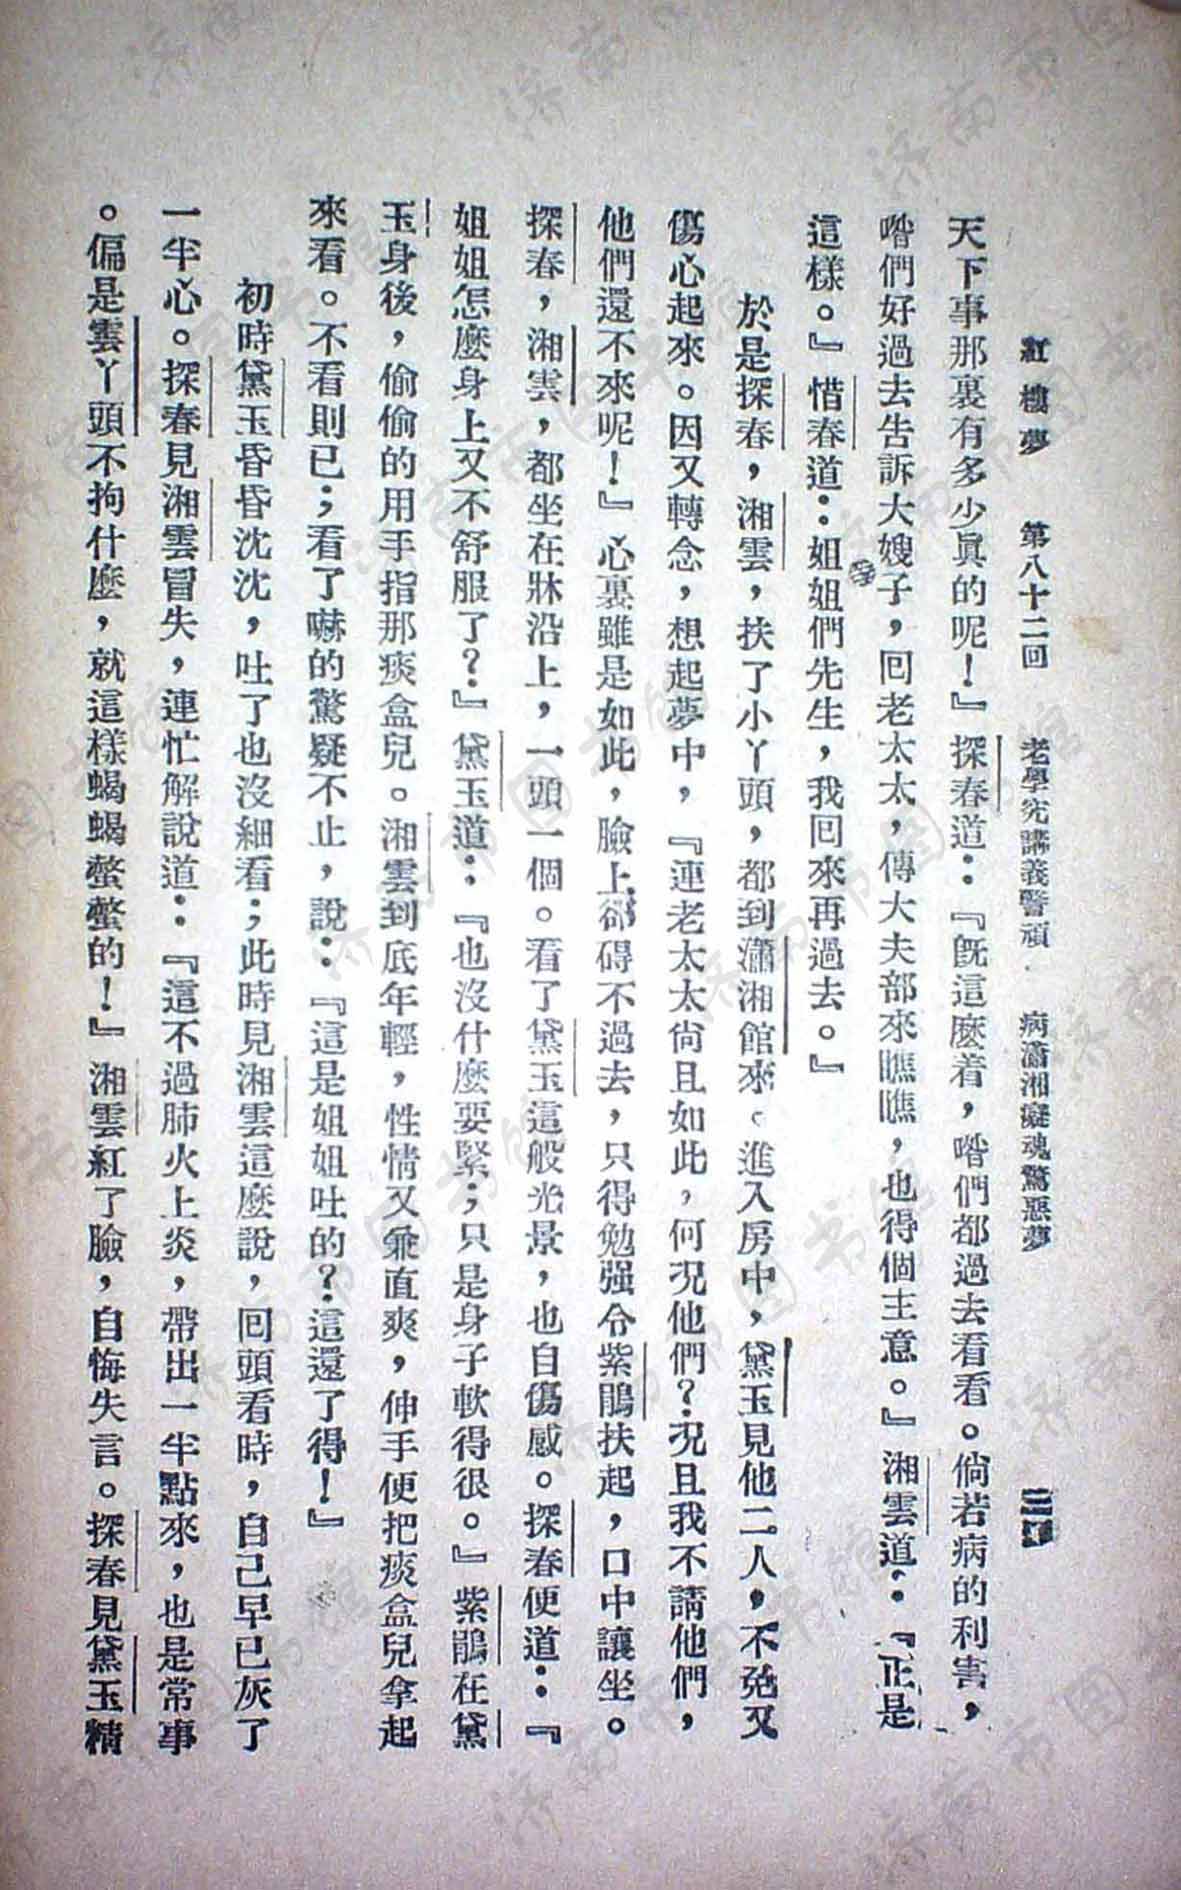 紅樓夢 第八十二回 老學究講義警頑 病瀟湘癡魂驚惡夢
天下事那裏有多少眞的呢！』探春道：『旣這麽着，喒們都過去看看。倘若病的利害，
喒們好過去告訴大嫂子，回老太太，傳大夫部來瞧瞧，也得個主意。』湘雲道：『正是
這樣。』惜春道：姐姐們先生，我回來再過去。』
於是探春，湘雲，扶了小丫頭，都到瀟湘館來。進入房中，黛玉見他二人，不免又
傷心起來。因又轉念，想起夢中，『連老太太尙且如此，何況他們？況且我不請他們，
他們還不來呢！』心裏雖是如此，臉上卻碍不過去，只得勉强令紫鵑扶起，口中讓坐。
探春，湘雲，都坐在牀沿上，一頭一個。看了黛玉這般光景，也自傷感。探春便道：『
姐姐怎麼身上又不舒服了？』黛玉道：『也沒什麼要緊；只是身子軟得很。』紫鵑在黛
玉身後，偷偷的用手指那痰盒兒。湘雲到底年輕，性情又兼直爽，伸手便把痰盒兒拿起
來看。不看則已；看了嚇的驚疑不止，說：『這是姐姐吐的？這還了得！』
初時黛玉昏昏沈沈，吐了也沒細看；此時見湘雲這麼說，回頭看時，自己早已灰了
一半心。探春見湘雲冒失，連忙解說道：『這不過肺火上炎，帶出一半點來，也是常事
。偏是雲丫頭不拘什麼，就這樣蝎蝎螫螫的！』湘雲紅了臉，自悔失言。探春見黛玉精
济南市图书馆